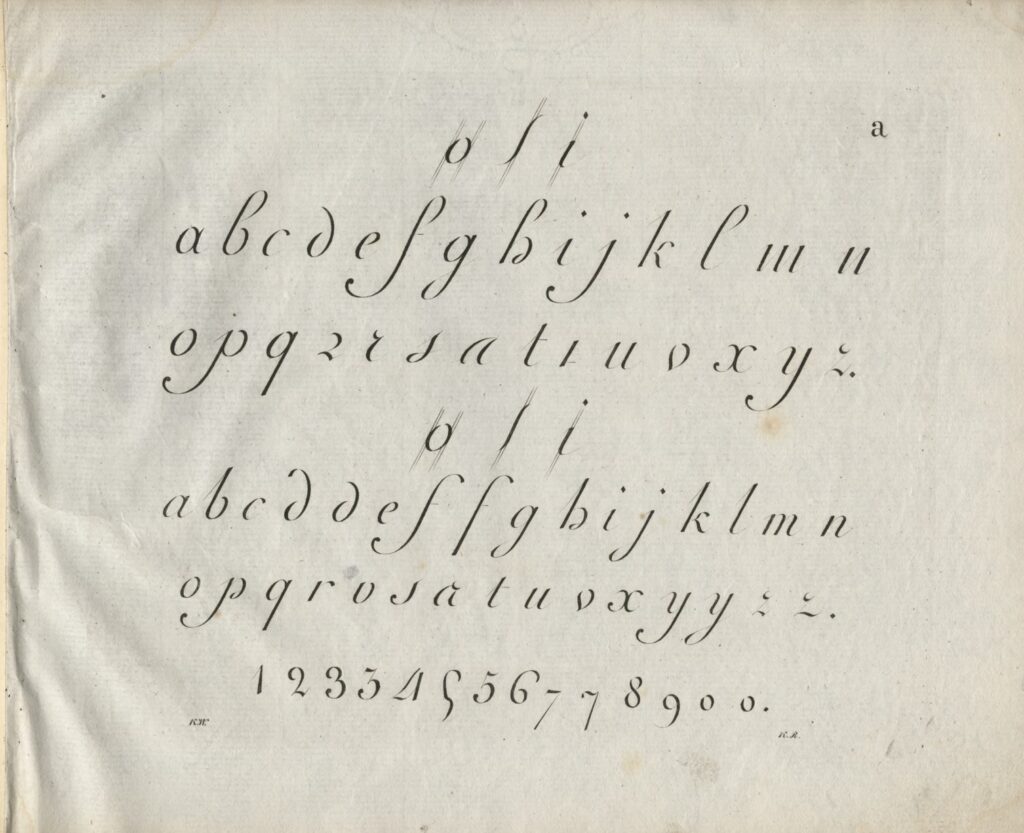 a
o ſ i
a b c d e f g h i j k l m n
o p q 2 r r s a t ı u v x y z.
o ſ i
a b c d d e f f g h i j k l m n
o p q r v s a t u v x y y z z.
1 2 3 3 4 5 5 6 7 7 8 9 0 0.
K.W. K.R.